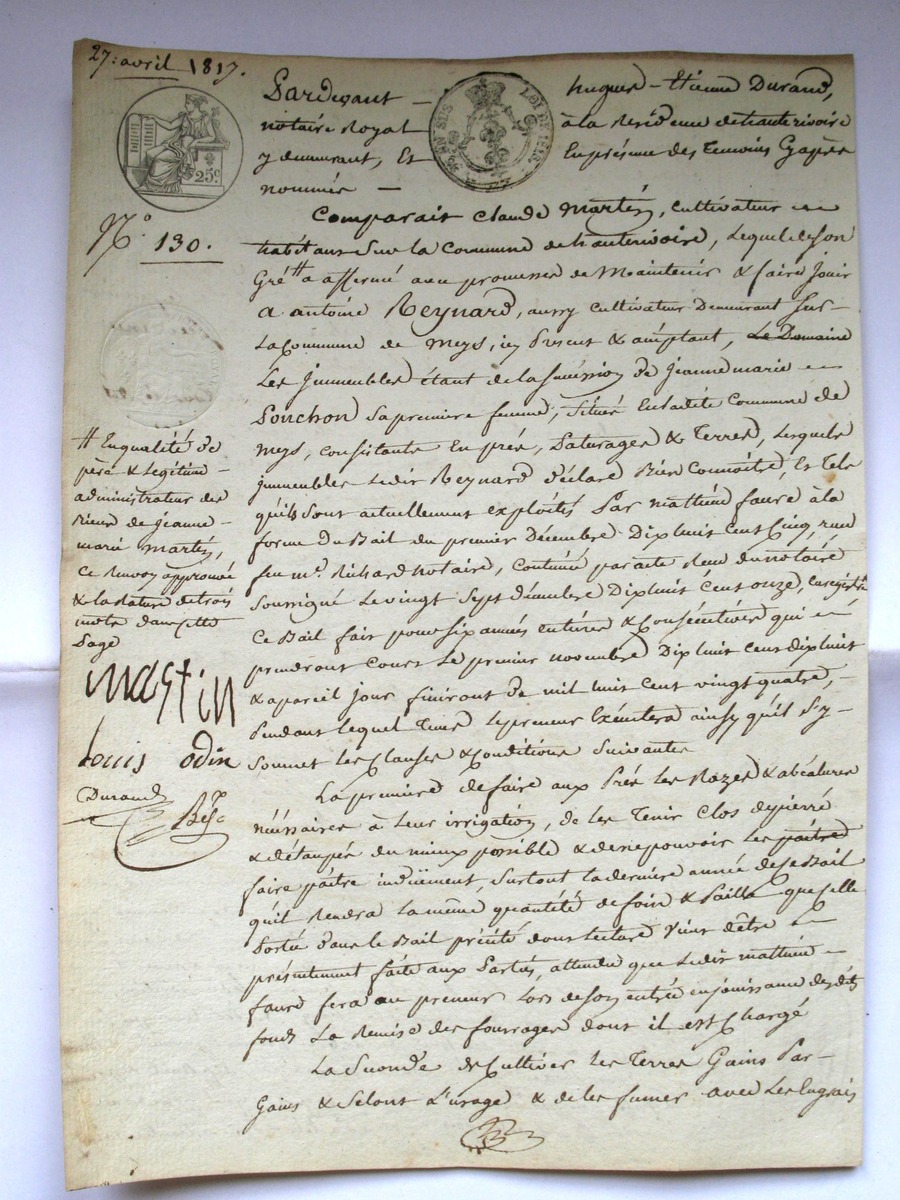 27: avril 1817.
25c
EN SUS
LOI DE 1816
N.o 130.
Pardevant – hugues – Etienne Durand,
notaire Royal à la Residence de hauterivoire
y demeurant, Et En présence des Temoins Cy après
nommés –
Comparait Claude Martin, cultivateur
habitant Sur la Commune de hauterivoire, Lequel de Son
Gré # a affermé avec promesses de Maintenir & faire Jouir
a antoine Reynard, aussy cultivateur Demeurant Sur –
La Commune de Meys, icy Present & acceptant, Le Domaine
Les Immeubles étant de la Succession de Jeanne marie
Ponchon Sa premiere femme, Situés En ladite Commune de
Meys, Consistants En prés, Paturages & Terres, Lesquels
immeubles Ledit Reynard déclare Bien Connoître, Et Tels
qu'ils Sont actuellement exploités Par mathieu faure à la
forme du Bail du premier Décembre Dix huit Cent Cinq, reçu
feu me. Richard Notaire, Continué par acte Reçu du notaire
Soussigné Le vingt Sept décembre Dix huit Cent onze, enregistré
Ce Bail fait pour Six années entières & Consécutives qui
prendront Cours Le premier novembre Dix huit Cent dix huit
& a pareil jour finiront de mil huit Cent vingt quatre, –
Pendant lequel Tems Le preneur Exécutera ainsy qu'il S'y –
Soumet Les Clauses & Conditions Suivantes
La premiere de faire aux Prés Les Razes & abéalures
néssaires à Leur irrigation, de Les Tenir Clos de pierre
& d'étaupés du mieux possible & de ne pouvoir Les paitre
faire paitre indûement, Surtout La derniere année de Ce Bail
qu'il Rendra La même quantité de foin & Paille que Celle
Portée dans Le Bail précité dont Lecture Vient d'être
présentement faite aux Parties, attendu que Ledit mathieu –
faure fera au preneur Lors de Son entrée en jouissance des dits
fonds La Remise des fourrages dont il est Chargé
La Seconde de Cultiver Les Terres Gains Par –
Gains & Selont L'usage & de les fumer avec Les Engrais
# En qualité de
père & Legitime –
administrateur des
biens de Jeanne –
marie Martin,
Ce Renvoy approuvé
& la Rature de trois
mots dans Cette
Page
mastin
Louis odin
Durand